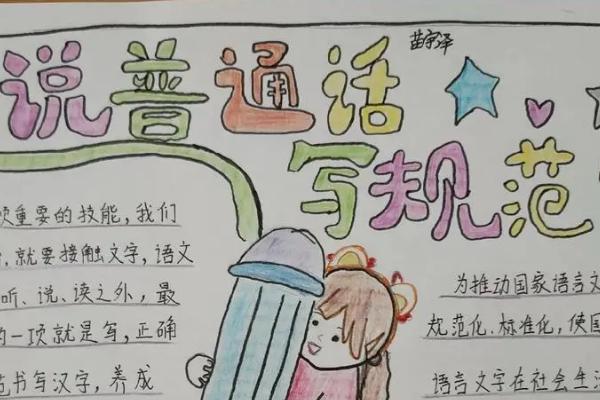 说普通话
苗宇泽
写规范
重要的技能，我们
，就要接触文字，语文
听、说、读之外，最
的一项就是写，正确
范书写汉字，养成
为推动国家语言文
规范化、标准化，使国
语言文字在社会生活